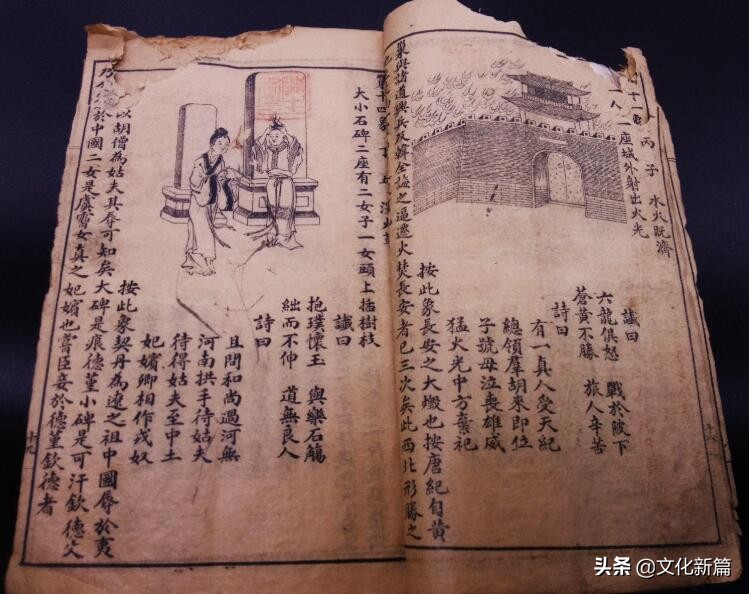 丙子 水火既濟
一人一座城外射出火光
讖曰
六龍俱怒 戰於陂下
蒼黃不勝 旅人辛苦
詩曰
有一真人受天紀
總領羣胡來即位
子號母泣喪雄威
猛火光中方棄祀
按此象長安之大燬也按唐紀自黄
巢與諸道興兵反
之逼遷火焚長安者已三次矣此西北形勝之
十四象
大小石碑二座有二女子一女頭上插樹枝
讖曰
抱璞懷玉 與欒石觴
絀而不伸 道無良人
詩曰
且問和尚遇河無
河南拱手待姑夫
待得姑夫至中土
妃嬪卿相作戎奴
按此象契丹為遼之祖中國辱於夷
以胡僧為姑夫其辱可知矣大碑是痕德堇小碑是可汗欽德父
於中國二女是虞霫女真之妃嬪也嘗臣妾於德堇欽德者
十九
头条 @文化新篇